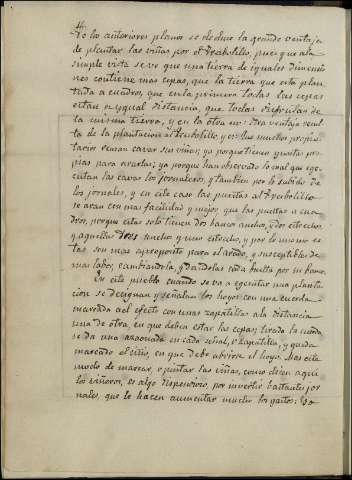 De los anteriores planos se deduce la grande ventaja
de plantar las viñas por el Trebolillo, pues que a la
simple vista se ve que una tierra de iguales dimensio
nes contiene mas cepas, que la tierra que está plan
tada a cuadros, que en la primera todas las cepas
estan a ygual distancia, que todas disfrutan de
la misma tierra, y en la otra no: Otra ventaja resul
ta de la plantacion al trebolillo, y es: Que muchos propie
tarios rehusan cavar sus viñas; ya porque tienen yuntas pro
pias para ararlas; ya porque han observado lo mal que eje
cutan las cavas los jornaleros, y tambien por lo subido de
los jornales, y en este caso las puestas al Trebolillo
se aran con mas facilidad y mejor que las puestas a cua
dros, porque estas solo tienen dos bancos anchos, y dos estrechos
y aquellas tres anchos y uno estrecho, y por lo mismo es
tas son mas a proposito para el arado, y susceptibles de
mas labor, cambiandola, y dandolas cada buelta por su banco.
En este pueblo cuando se va a egecutar una planta
cion se designan y señalan los hoyos con una cuerda
marcada al efecto con unas zapatillas a la distancia
una de otra, en que deben estar las cepas; tirada la cuerda
se da una azadonada en cada señal, o zapatilla, y queda
marcado el sitio, en que debe abrirse el hoyo. Mas este
modo de marcar, o pintar las viñas, como dicen aqui
los viñeros, es algo dispendioso, por invertir bastantes jor
nales, que le hacen aumentar mucho los gastos: Yo